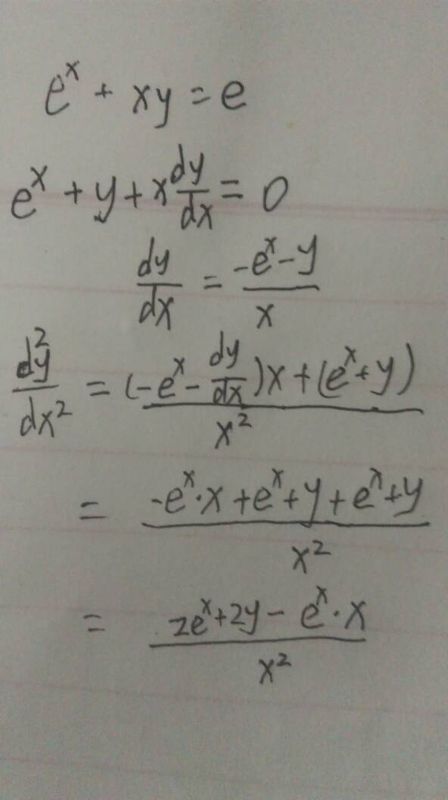 e^x + xy = e
e^x + y + x dy/dx = 0
dy/dx = (-e^x - y)/x
d²y/dx² = ((-e^x - dy/dx)x + (e^x + y))/x²
= (-e^x·x + e^x + y + e^x + y)/x²
= (2e^x + 2y - e^x·x)/x²